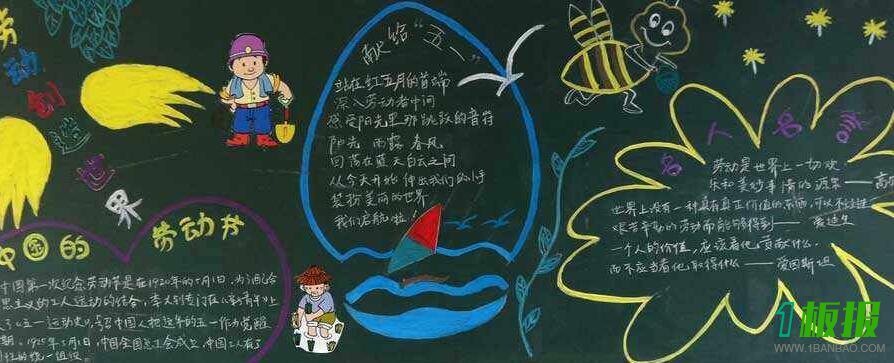 劳动创造世界
献给“五一”
站在红五月的首端
深入劳动者中间
感受阳光里那跳跃的音符
阳光 雨露 春风
回荡在蓝天白云之间
从今天开始 伸出我们的小手
装扮美丽的世界
我们启航啦!
名人名言
劳动是世界上一切欢
乐和美妙事情的源泉——高
世界上没有一种具有真正价值的东西,可以不经过
艰苦辛勤的劳动而能够得到——爱迪生
一个人的价值,应该看他贡献什么
而不应当看他取得什么——爱因斯坦
中国的 劳动节
中国第一次纪念劳动节是在1920年的5月1日,为
思主义的工人运动的结合,李大钊专门在《新青年》上
期。1925年5月1日,中国全国总工会成立,中国工人有了
的统一组织。
1板报
WWW.1BANBAO.COM